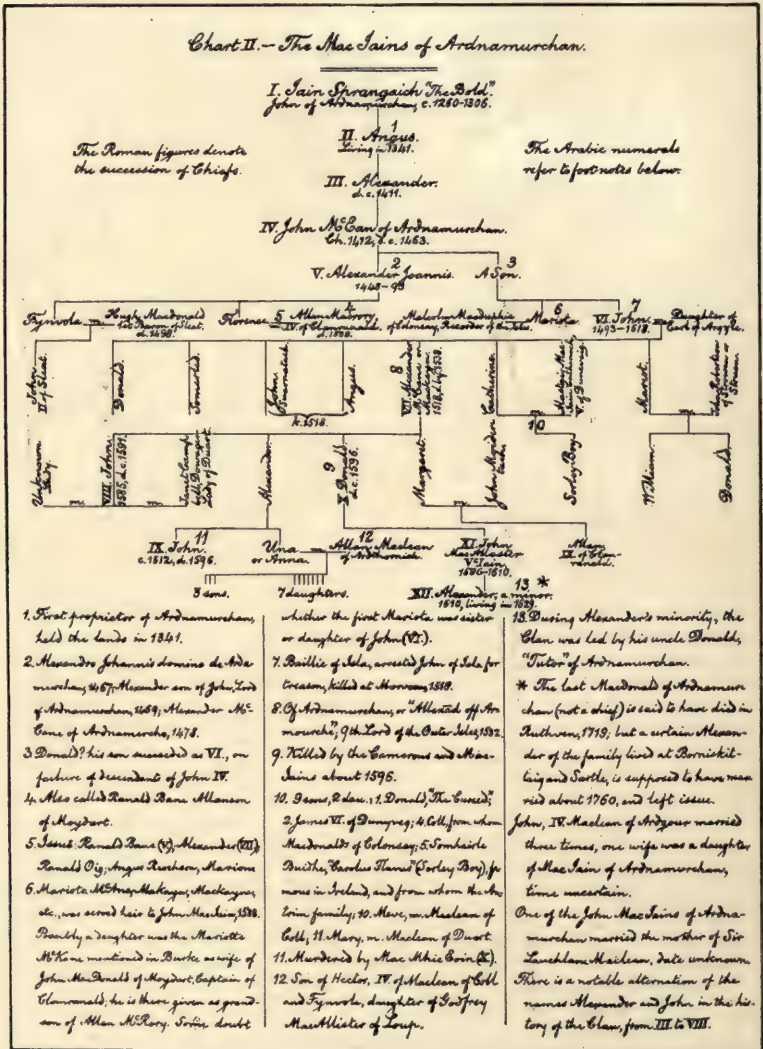 Chart II. — The Mac Iains of Ardnamurchan.
I. Iain Sprangaich "The Bold".
John of Ardnamurchan, c. 1250-1306.
The Roman figures denote
the succession of Chiefs.
1
II. Angus.
Living in 1341.
The Arabic numerals
refer to footnotes below.
III. Alexander.
d. c. 1411.
IV. John McEan of Ardnamurchan.
Ch. 1412, d. c. 1463.
2
V. Alexander Joannis.
1448-93
3
A Son.
Fynvola
Hugh Macdonald
1st Baron of Sleat.
d. 1498.
Florence
4
5 Allan Macrory
IV. of Clanranald.
Malcolm Macduphie
of Colonsay, Recorder of the Isles.
6
Mariota
7
VI. John.
1493-1518.
Daughter of
Earl of Argyle.
John
II. of Sleat.
Donald.
Somerled.
John
Angus.
k. 1518.
8
VII. Alexander
Catherine
Mariot
10
Unknown
Lady.
VIII. John.
Janet Campbell, Dowager
Lady of Duart.
Alexander
9
X Donald.
d. c. 1596.
Margaret
John Moydertach
Sorley Boy
William
Donald.
11
IX. John.
c. 1612, d. 1596.
Una
or Anna.
12
Allan Maclean
of Ardtornish.
XI. John
Mac Allester
Vc Iain,
1596-1610.
Allan
IX. of Clanranald.
3 sons.
7 daughters.
13 *
XII. Alexander, a minor.
1610, living in 1629.
1. First proprietor of Ardnamurchan,
held the lands in 1341.
2. Alexandro Johannis domino de Ardamurchan, 1467; Alexander son of John, Lord
of Ardnamurchan, 1469; Alexander McCane of Ardnamurcho, 1478.
3 Donald? his son succeeded as VI., on
failure of descendant of John IV.
4. Also called Ranald Bane Allanson
of Moydart.
5. Issue: Ranald Bane (V); Alexander (VII);
Ranald Oig; Angus Reochson; Marione
6. Mariota McAne, Makayne, Mackayne,
etc., was served heir to John MacIain, 1538.
Possibly a daughter was the Mariotte
McKane mentioned in Burke as wife of
John MacDonald of Moydart, Captain of
Clanranald; he is there given as grandson of Allan McRory. Some doubt
whether the first Mariota was sister
or daughter of John (VI.).
7. Baillie of Isla, arrested John of Isla for
treason, killed at Morvern, 1519.
8. Of Ardnamurchan, or "Allexted off Armourche", 9th Lord of the Outer Isles, 1532.
9. Killed by the Camerons and MacIains about 1596.
10. 9 sons, 2 dau.: 1. Donald, "The Cursed";
2. James VI. of Dunyveg; 4. Coll, from whom
Macdonalds of Colonsay; 5. Somhairle
Buidhe, "Carolus Flavus" (Sorley Boy), famous in Ireland, and from whom the Antrim family; 10. Meve, m. Maclean of
Coll; 11. Mary, m. Maclean of Duart.
11. Murdered by Mac Mhic Eoin (X).
12. Son of Hector, IV. of Maclean of Coll
and Fynvola, daughter of Godfrey
MacAllister of Loup.
13. During Alexander's minority, the
Clan was led by his uncle Donald,
"Tutor" of Ardnamurchan.
* The last Macdonald of Ardnamurchan (not a chief) is said to have died in
Ruthven, 1719; but a certain Alexander of the family lived at Borniskittaig and Sartle, is supposed to have married about 1760, and left issue.
John, IV. Maclean of Ardgour married
three times, one wife was a daughter
of Mac Iain of Ardnamurchan,
time uncertain.
One of the John MacIains of Ardnamurchan married the mother of Sir
Lauchlane Maclean, date unknown.
There is a notable alternation of the
names Alexander and John in the history of the Clan, from III. to VIII.